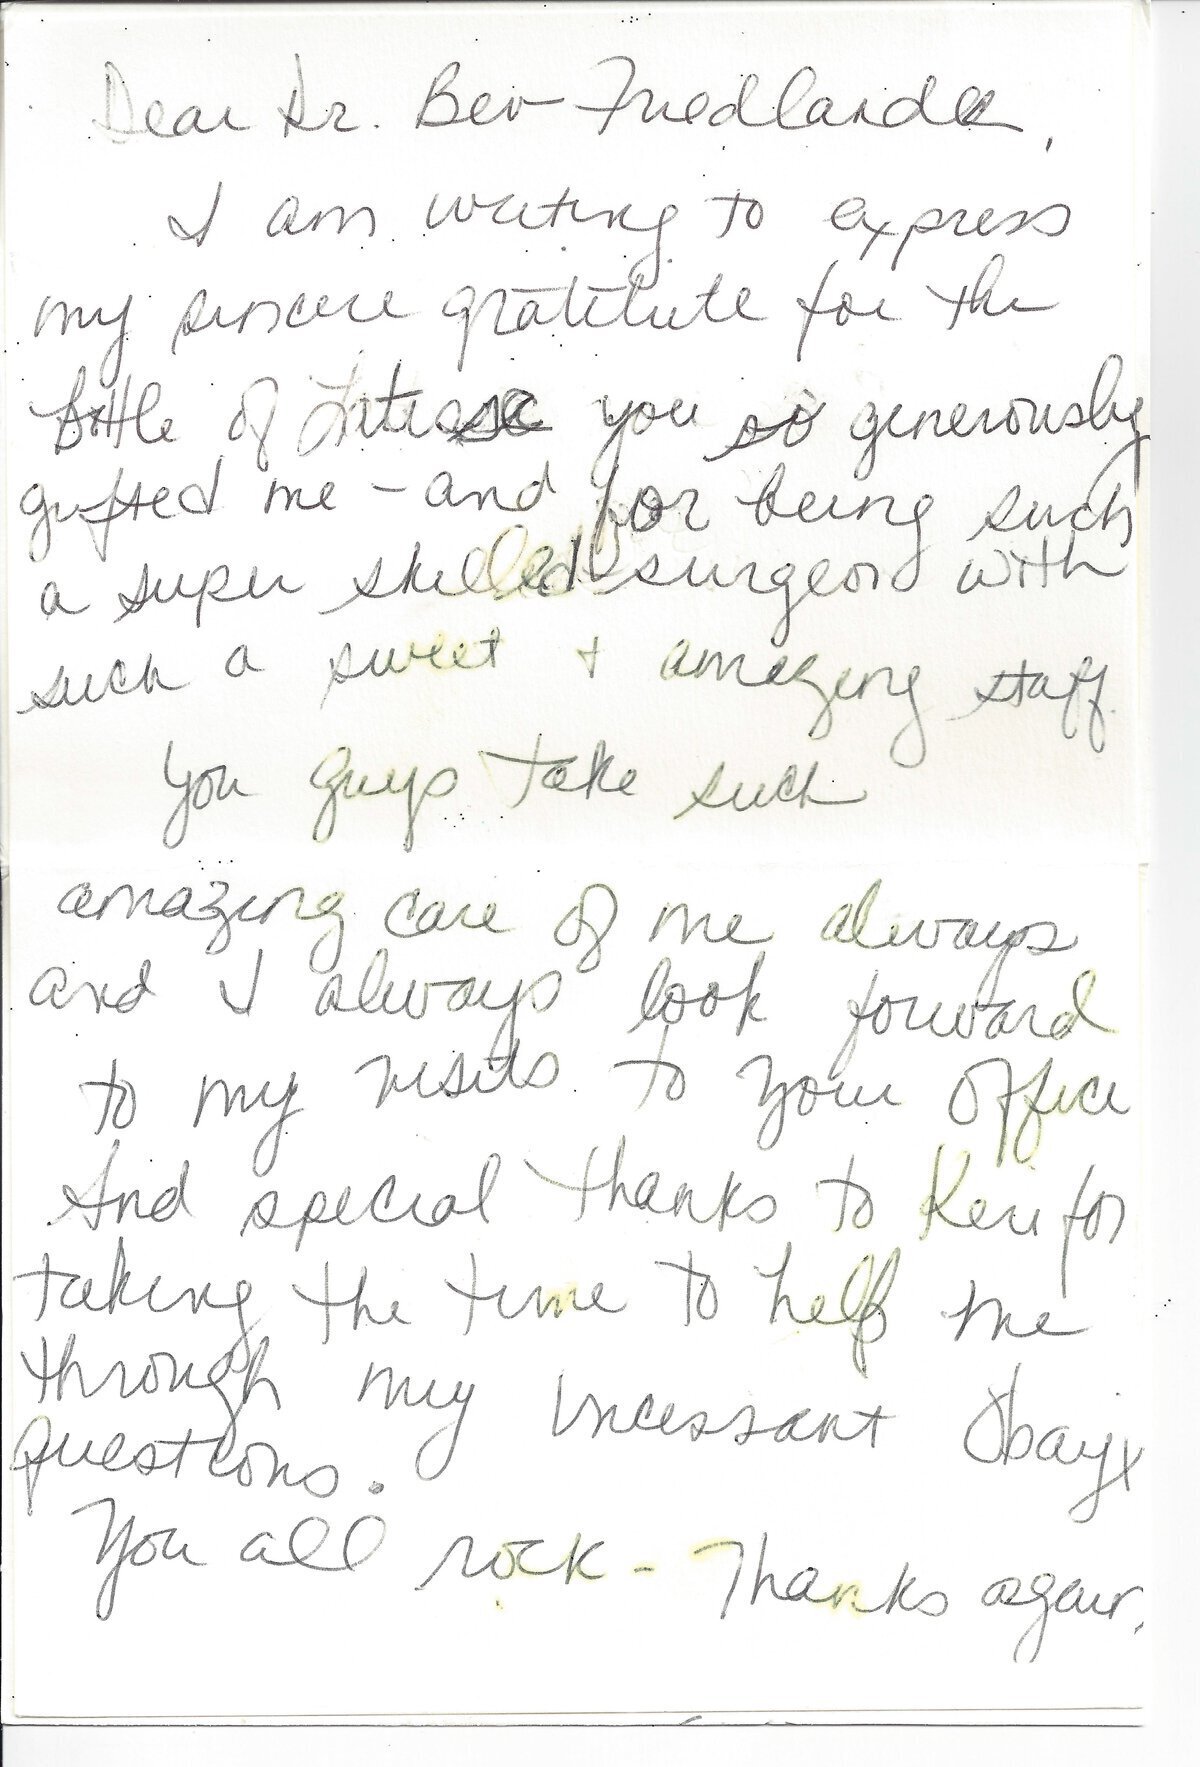 Dear Dr. Bev-Friedlander,
I am writing to express
my sincere gratitute for the
bottle of Latisse you so generously
gifted me - and for being such
a super skilled surgeon with
such a sweet + amazing staff.
You guys take such
amazing care of me always
and I always look forward
to my visits to your office
And special thanks to Keri for
taking the time to help me
through my incessant Obagi
questions.
You all rock - Thanks again.